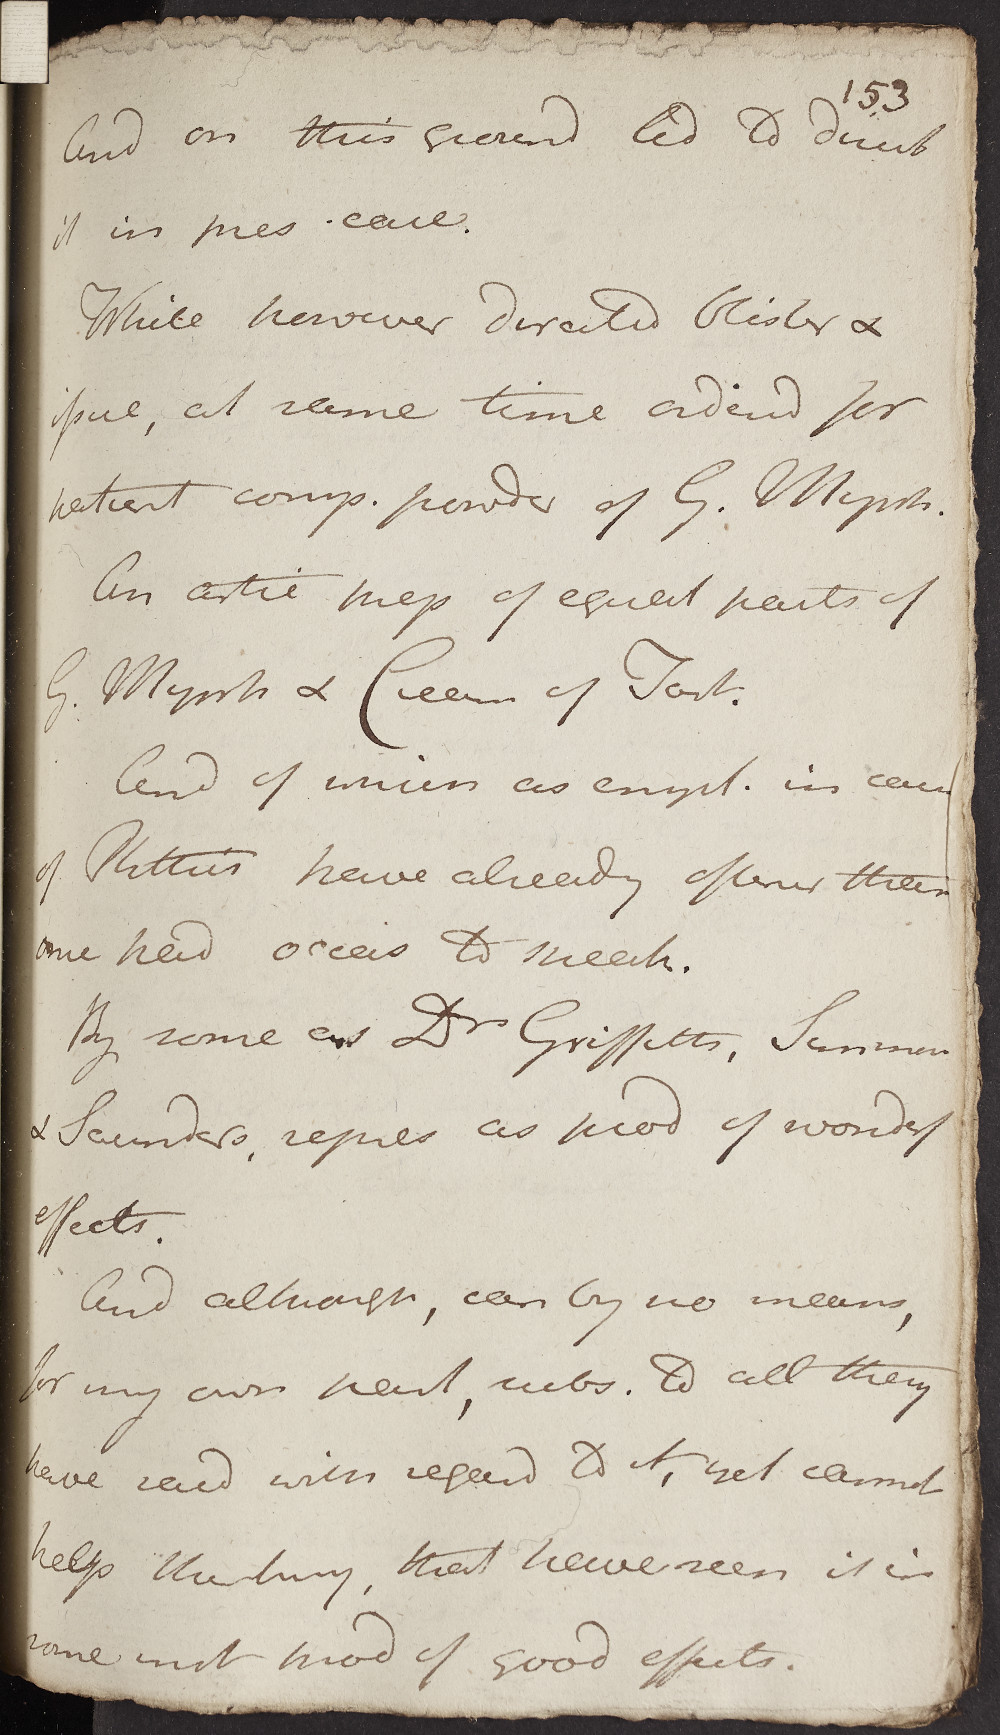 153
And on this ground led to direct
it in pres case.
While however directed blister &
issue, at same time ordered for
patient comp. powder of G. Myrrh.
An artic prep of equal parts of
G. Myrrh & Cream of Tart.
And of which as empl. in case
of Phthisis have already oftener than
one had occas to speak.
By some as Drs Griffitts, Simmon
& Saunders, repres as prod of wonderf
effects.
And although, can by no means,
for my own part, subs. to all they
have said with regard to it, yet cannot
help thinking, that have seen it in
some inst prod of good effects.